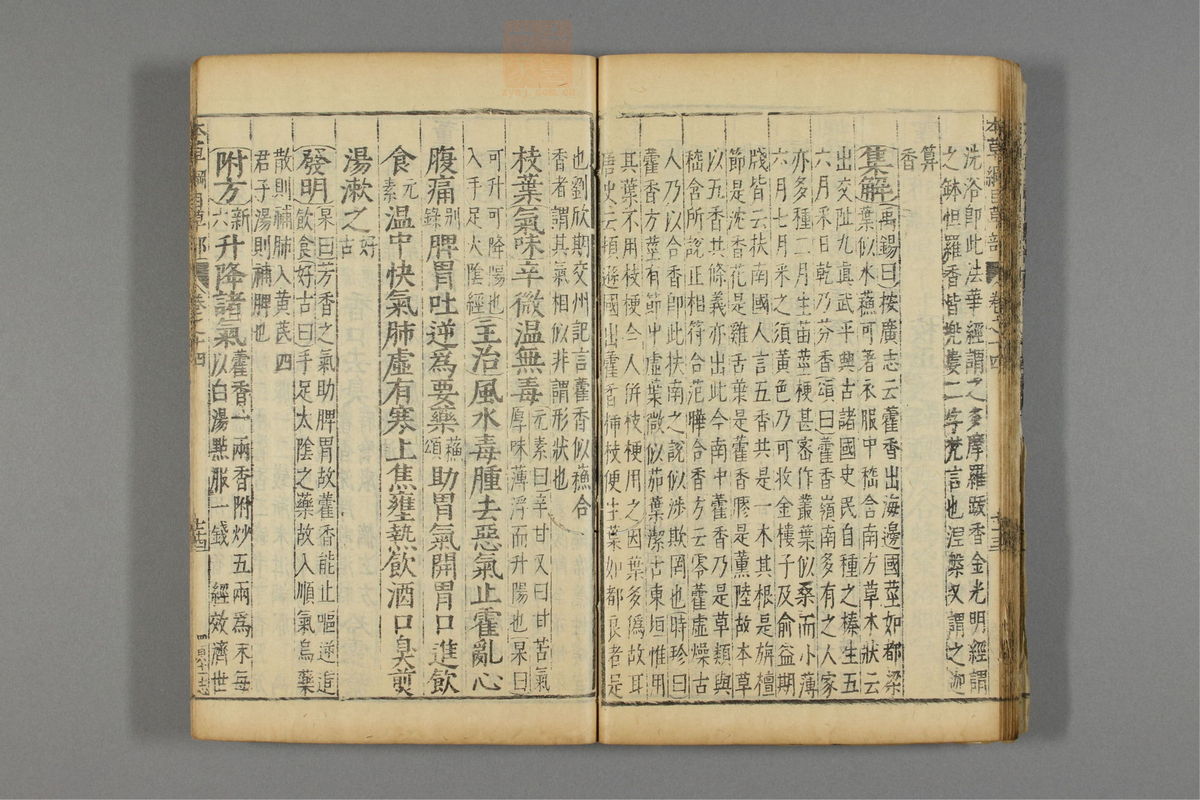 洗浴即此法華經謂之多摩羅跋香金光明經謂
之鉢怛羅香皆兜婁二字梵言也涅槃又謂之迦
算
香
集解禹錫曰按廣志云藿香出海邊國莖如都梁
葉似水蘇可著衣服中嵇含南方草木狀云
出交趾九真武平興古諸國吏民自種之榛生五
六月采日乾乃芬香頌曰藿香嶺南多有之人家
亦多種二月生苗莖梗甚密作叢葉似桑而小薄
六月七月采之須黃色乃可收金樓子及俞益期
牋皆云扶南國人言五香共是一木其根是旃檀
節是沈香花是雞舌葉是藿香膠是薰陸故本草
以五香共條義亦出此今南中藿香乃是草類與
嵇含所說正相符合范曄合香方云零藿虛燥古
人乃以合香即此扶南之說似涉欺罔也時珍曰
藿香方莖有節中虛葉微似茄葉潔古東垣惟用
其葉不用枝梗今人併枝梗用之因葉多偽故耳
唐史云頓遜國出藿香插枝便生葉如都良者是
也劉欣期交州記言藿香似蘇合
香者謂其氣相似非謂形狀也
枝葉氣味辛微溫無毒元素曰辛甘又曰甘苦氣
厚味薄浮而升陽也杲曰
可升可降陽也
入手足太陰經主治風水毒腫去惡氣止霍亂心
腹痛別錄脾胃吐逆為要藥蘇頌助胃氣開胃口進飲
食元素溫中快氣肺虛有寒上焦壅熱飲酒口臭煎
湯漱之好古
發明杲曰芳香之氣助脾胃故藿香能止嘔逆進
飲食好古曰手足太陰之藥故入順氣烏藥
散則補肺入黃芪四
君子湯則補脾也
附方新六升降諸氣藿香一兩香附炒五兩為末每
以白湯點服一錢 經效濟世
本草綱目草部
卷之十四
本草綱目草部
卷之十四